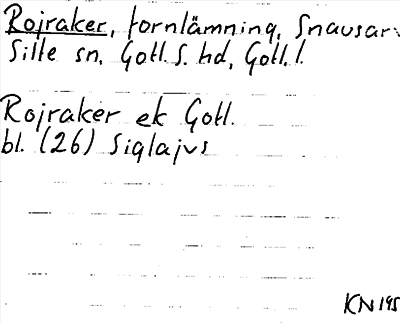 Rojraker, fornlämning, Snausarv
Silte sn, Gotl. S. hd, Gotl. l.
Rojraker ek Gotl.
bl. (26) Siglajvs
KN 195